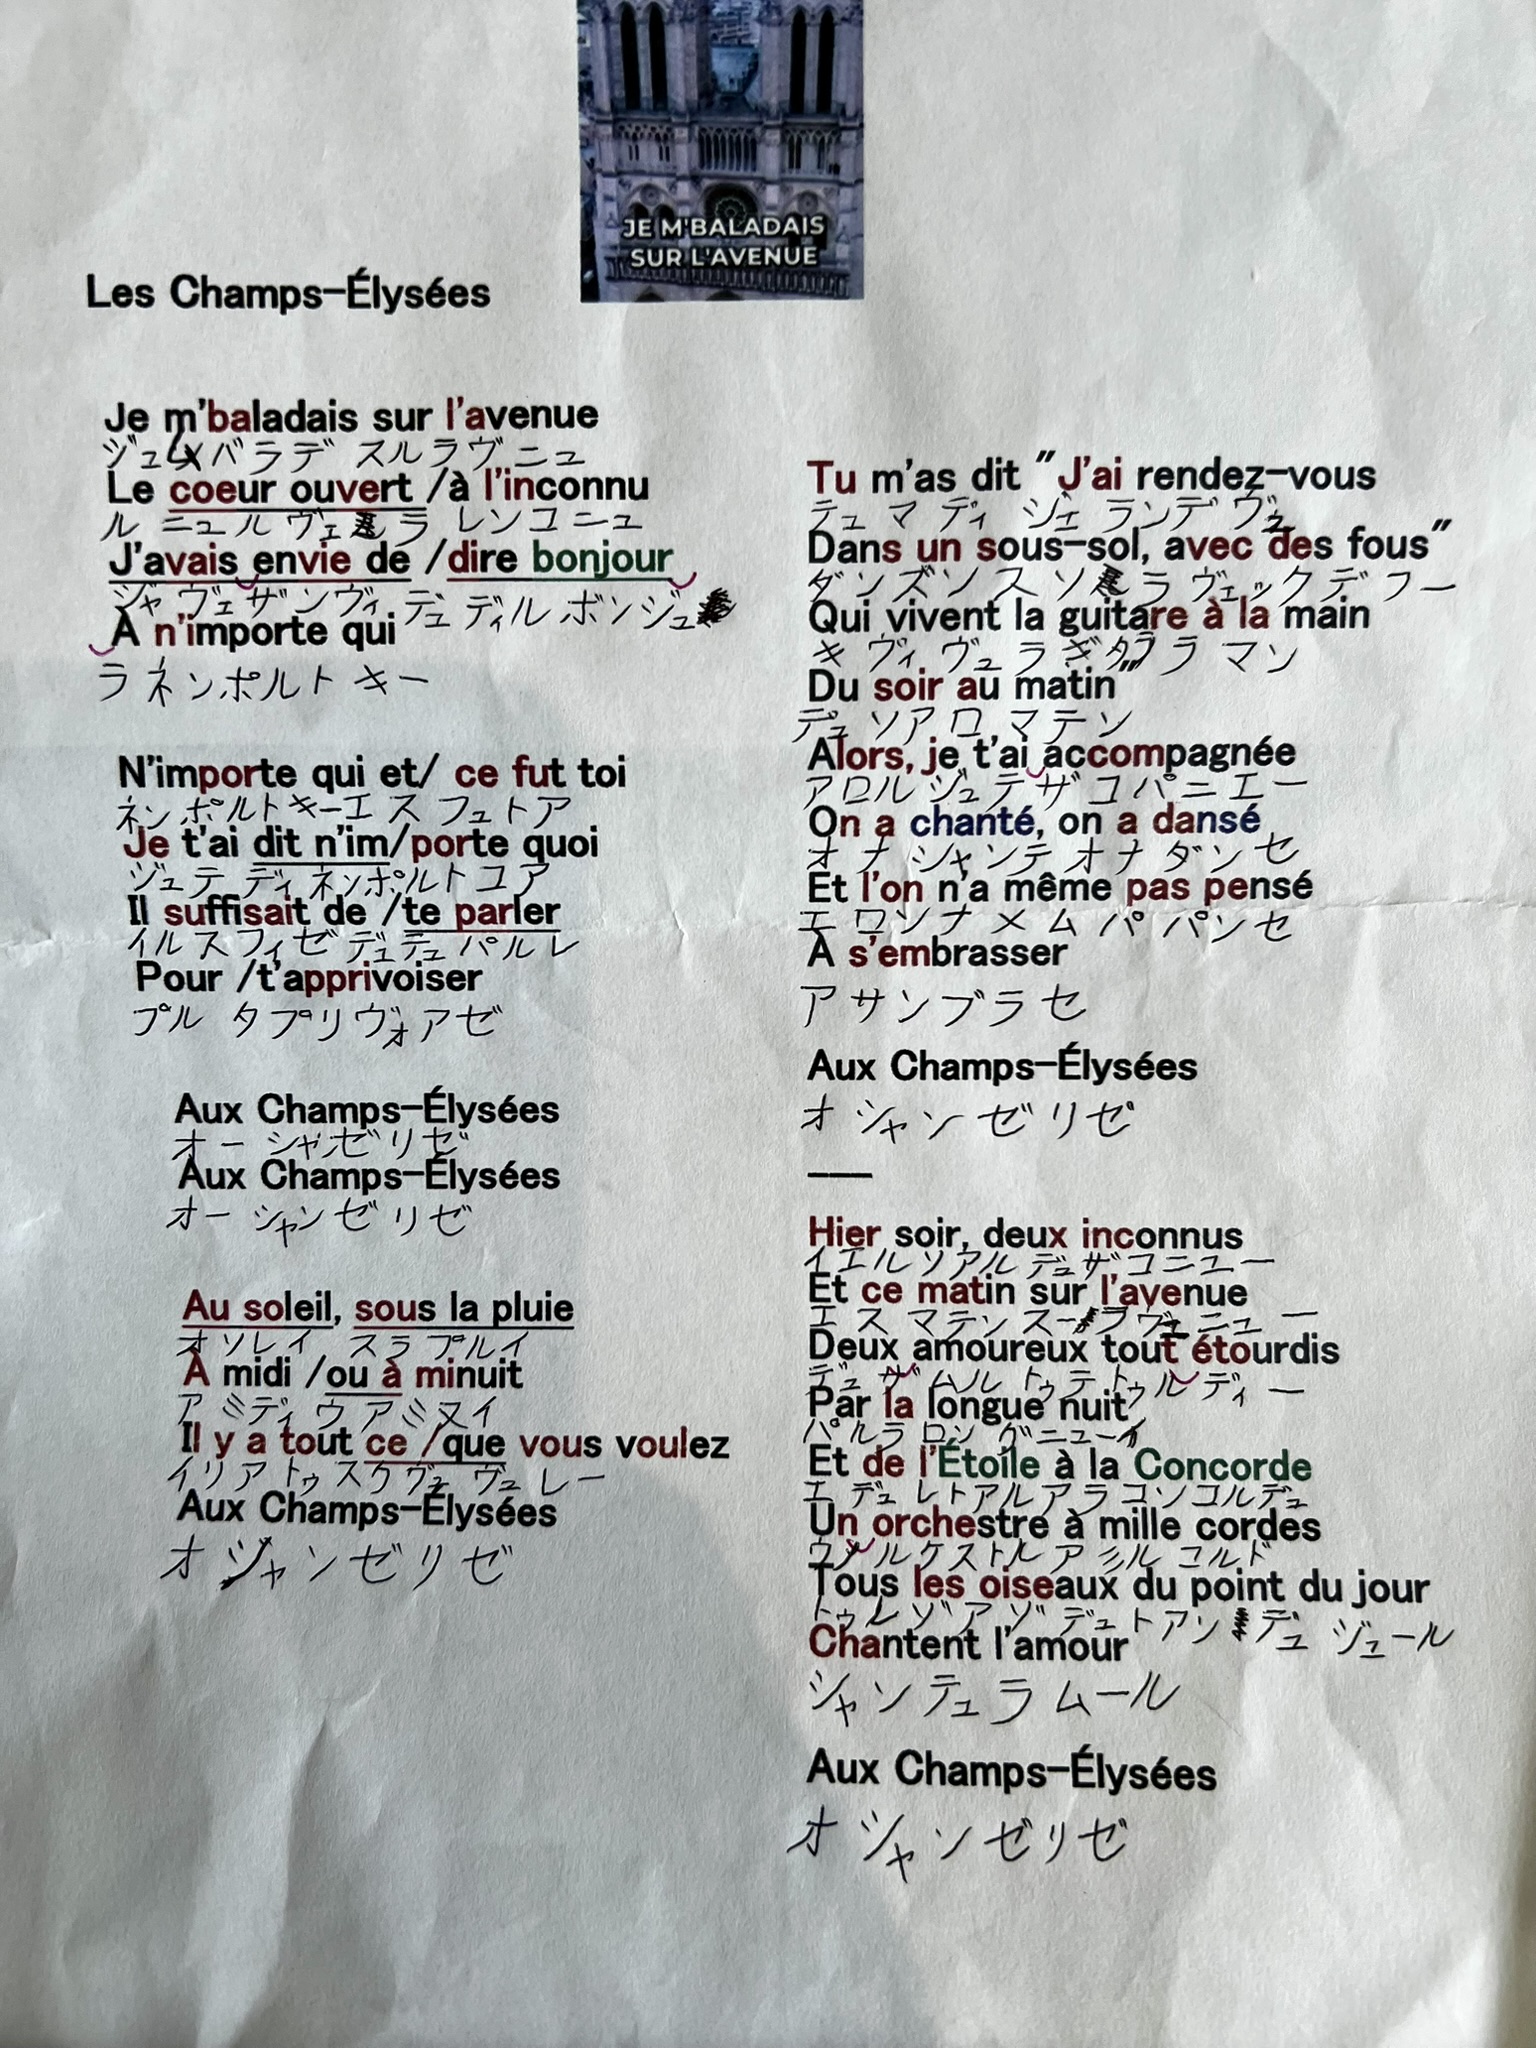 JE M'BALADAIS
SUR L'AVENUE
Les Champs-Élysées
Je m'baladais sur l'avenue
ジュ バラデ スルラヴニュ
Le coeur ouvert /à l'inconnu
ル ニュル ヴェ ラ レンコニュ
J'avais envie de /dire bonjour
ジャヴェザンヴィ デュ ディル ボンジュ
À n'importe qui
ラ ネンポルト キー
N'importe qui et/ ce fut toi
ネンポルトキーエ ス フュトア
Je t'ai dit n'im/porte quoi
ジュテ ディ ネンポルトコア
Il suffisait de /te parler
イルスフィゼ デュテュ パルレ
Pour /t'apprivoiser
プル タプリヴォアゼ
Aux Champs-Élysées
オー シャンゼリゼ
Aux Champs-Élysées
オー シャンゼリゼ
Au soleil, sous la pluie
オソレイ スラ プルイ
À midi /ou à minuit
ア ミディ ウ アミヌイ
Il y a tout ce /que vous voulez
イリア トゥスク ヴュレー
Aux Champs-Élysées
オ シャンゼリゼ
Tu m'as dit "J'ai rendez-vous
テュ マ ディ ジェ ランデ ヴュ
Dans un sous-sol, avec des fous"
ダンズンスソ ラ ヴェックデ フー
Qui vivent la guitare à la main
キ ヴィ ヴュ ラギタララ マン
Du soir au matin"
デュ ソアロ マテン
Alors, je t'ai accompagnée
アロル ジュテザ コパニエー
On a chanté, on a dansé
オナ シャンテ オナ ダンセ
Et l'on n'a même pas pensé
エ ロンナ メム パ パンセ
À s'embrasser
アサンブラセ
Aux Champs-Élysées
オ シャンゼリゼ
Hier soir, deux inconnus
イエルソアル デュザコニュー
Et ce matin sur l'avenue
エ ス マテンスー ラヴェニュー
Deux amoureux tout étourdis
デュ ザ ムル トゥ テトゥルディー
Par la longue nuit
パルラ ロン グニューイ
Et de l'Étoile à la Concorde
エ デュ レトアルアラ コンコルデュ
Un orchestre à mille cordes
ルケストル ア ミル コルド
Tous les oiseaux du point du jour
トゥレゾアゾ デュトアン デュ ジュール
Chantent l'amour
シャンテュラムール
Aux Champs-Élysées
オ シャンゼリゼ